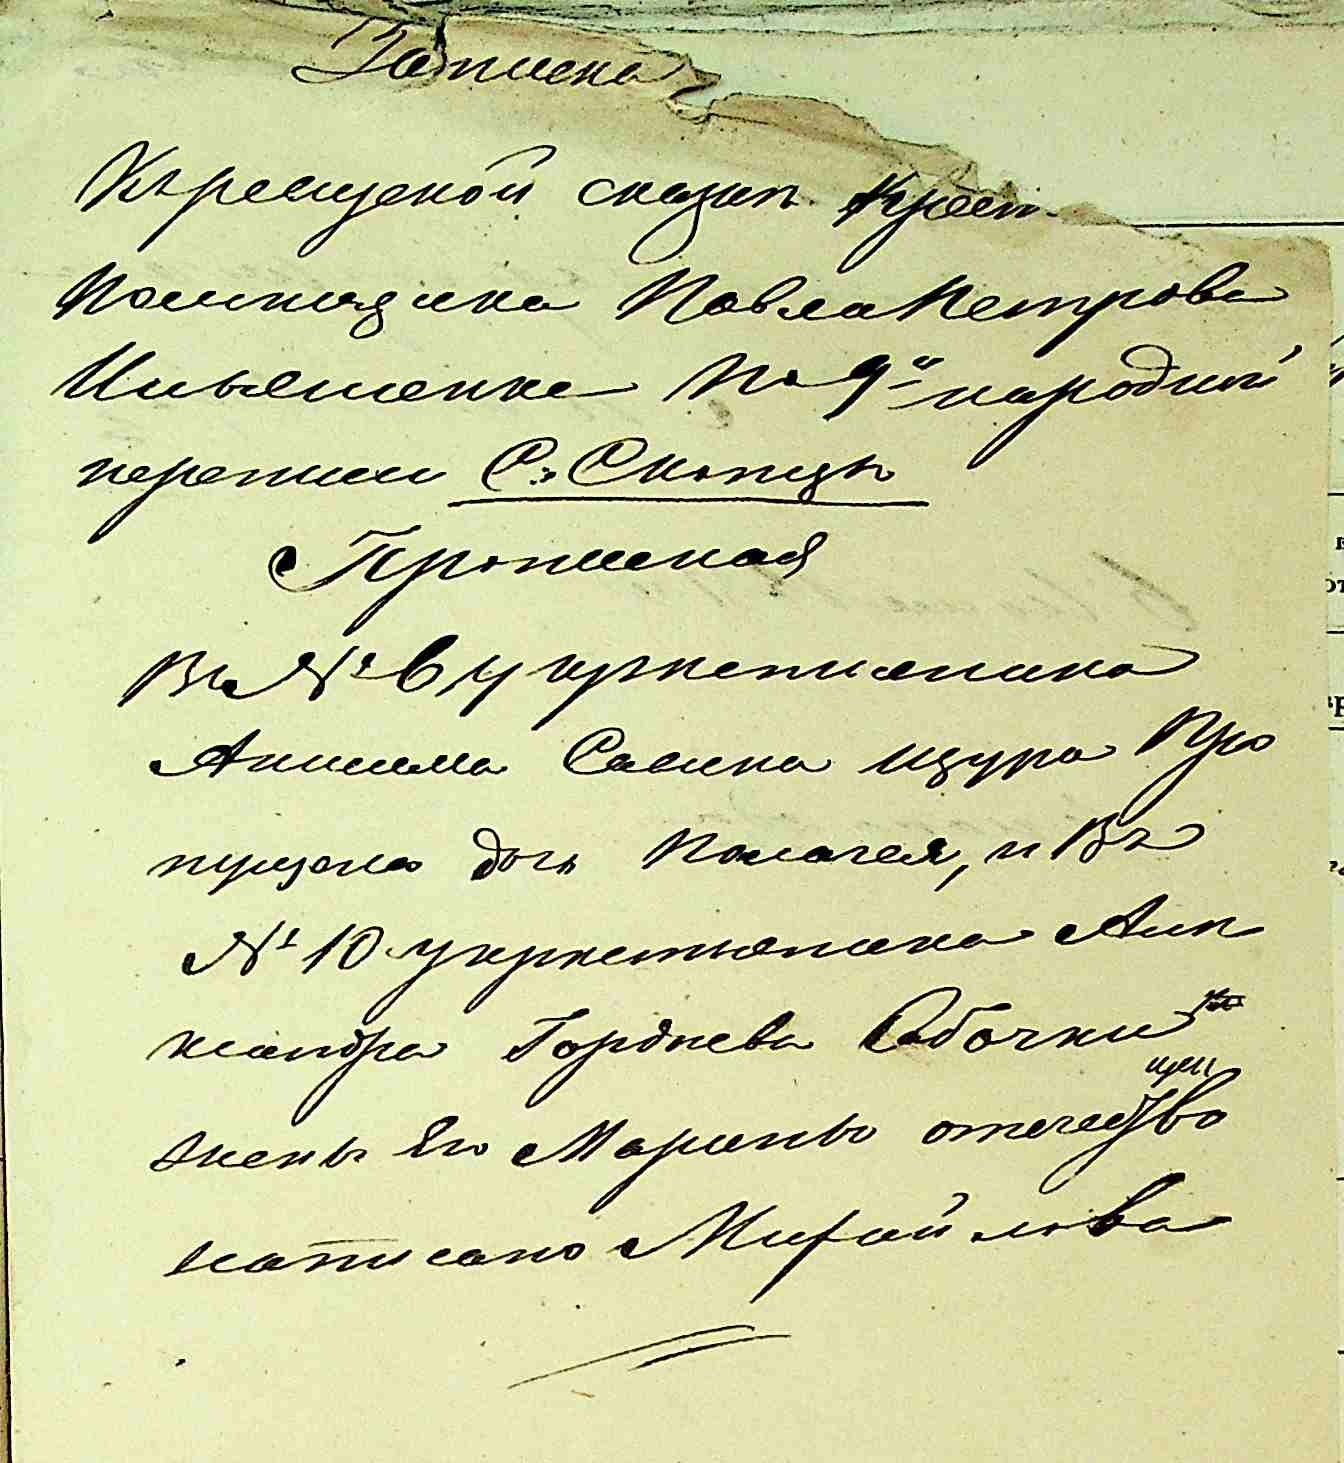 Записка
Къ ревизской сказкѣ Крест.
помещика Павла Петрова
Ильяшенка по 9й народной
переписи С. Скопцы
Прописная
Въ № 6 у крестьянина
Анисима Савина Щура про
пущена дочь Палагея, и Въ
№ 10 у крестьянина Але
ксандра Гордѣева Собочки
жены Его Марины отечество
написано Михайлова